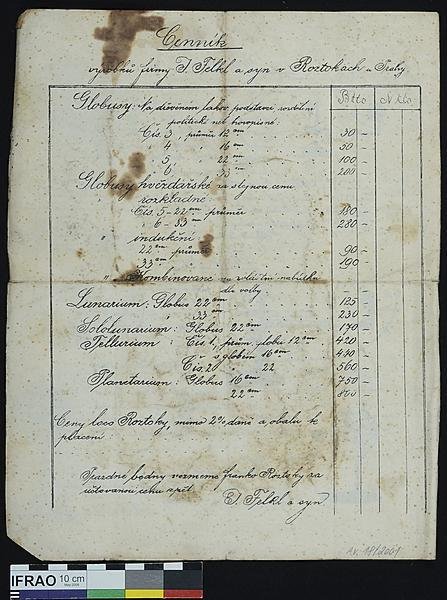 Cenník
výrobků firmy J. Felkl a syn v Roztokách u Prahy
Btto N tto
Globusy: Na dřevěném lakov. podstavci
politick. neb horopisné:
Čís. 3, průměr 12 cm 30 –
" 4 " 16 cm 50 –
" 5 " 22 cm 100 –
" 6 " 33 cm 200 –
Globusy hvězdářské za stejnou cenu
rozkladné
Čís. 5 – 22 cm průměr 180 –
" 6 – 33 cm " 280 –
indukční
22 cm průměr 90 –
33 cm " 190 –
" Kombinované na zvláštní nabídku
dle volby
Lunarium: Globus 22 cm 125 –
33 cm 230 –
Sololunarium: Globus 22 cm 170 –
Tellurium: Čís. 1, prům. globu 12 cm 420 –
s globem 16 cm 440 –
Čís. 2 " 22 560 –
Planetarium: Globus 16 cm 750 –
22 cm 800 –
Ceny loco Roztoky, mimo 2% daně a obalu k
placení
Prázdné bedny vezmeme franko Roztoky za
účtovanou cenu zpět
J. Felkl a syn
IFRAO 10 cm